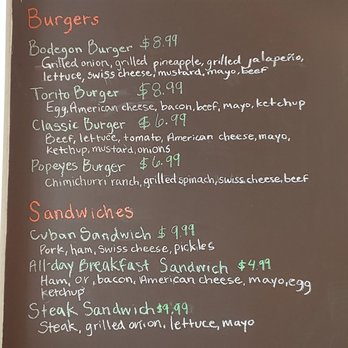 Burgers
Bodegon Burger $8.99
Grilled onion, grilled pineapple, grilled jalapeño,
lettuce, swiss cheese, mustard, mayo, beef
Torito Burger $8.99
Egg, American cheese, bacon, beef, mayo, ketchup
Classic Burger $6.99
Beef, lettuce, tomato, American cheese, mayo,
ketchup, mustard, onions
Popeyes Burger $6.99
Chimichurri ranch, grilled spinach, swiss cheese, beef
Sandwiches
Cuban Sandwich $9.99
Pork, ham, swiss cheese, pickles
All-day Breakfast Sandwich $4.99
Ham, or, bacon, American cheese, mayo, egg
ketchup
Steak Sandwich $9.99
Steak, grilled onion, lettuce, mayo